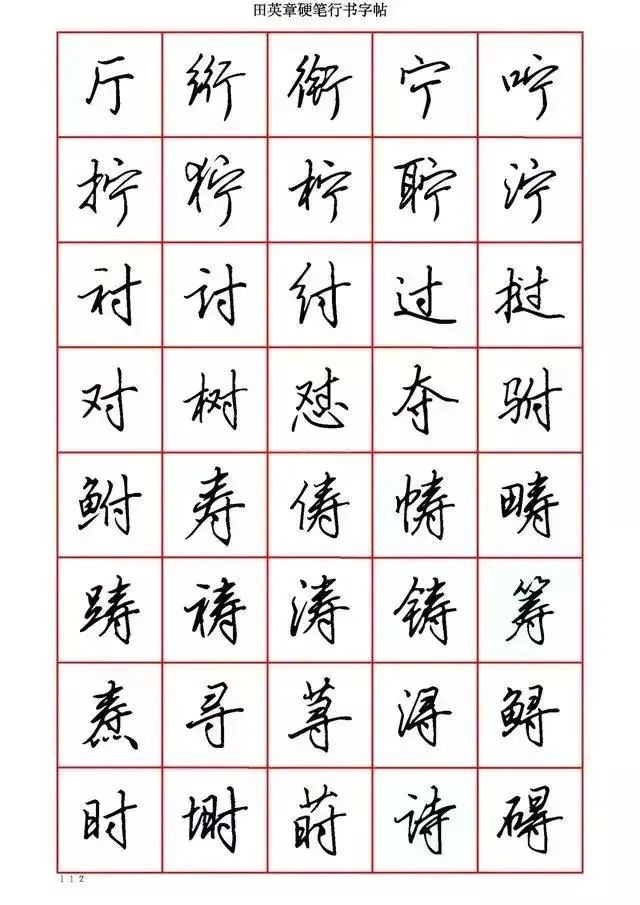 田英章硬笔行书字帖
厅 绗 衔 宁 咛
拧 狞 柠 聍 泞
衬 讨 纣 过 挝
对 树 怼 夺 驸
鲋 寿 俦 帱 畴
踌 祷 涛 铸 筹
焘 寻 荨 浔 鲟
时 埘 莳 诗 碍
112